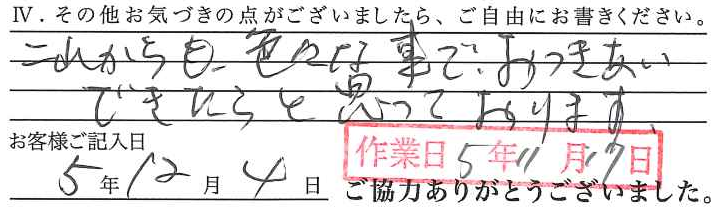 Ⅳ．その他お気づきの点がございましたら、ご自由にお書きください。
これからも、色々な事で、おつきあい
できたらと思っております、
お客様ご記入日
作業日 5年11月17日
5年12月4日
ご協力ありがとうございました。